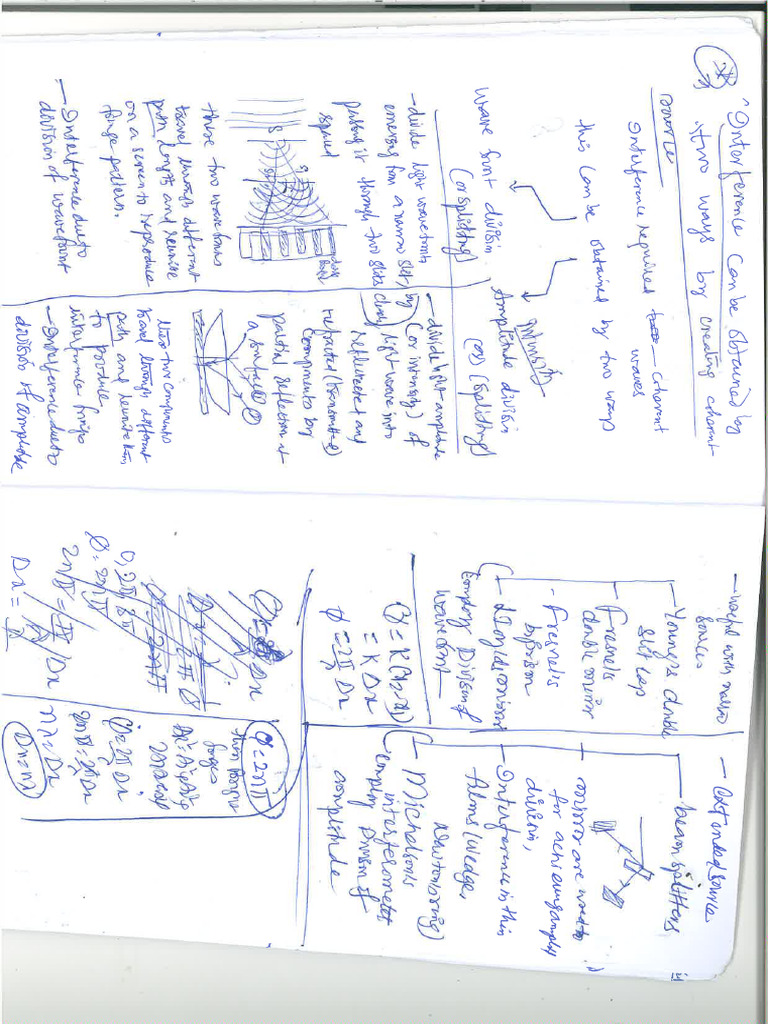 "Interference can be obtained by
two ways by creating coherent
source
Interference required - coherent
waves
this can be obtained by two ways
wave front division
(or splitting)
Intensity
Amplitude division
(or) (splitting)
- divide light wavefronts
emerging from a narrow slit, by
passing it through two slits closely
spaced
S
S1
S2
these two wavefronts
travel through different
path lengths and reunite
on a screen to reproduce
fringe pattern.
- Interference due to
division of wavefront
- divide light amplitude
(or intensity) of
light wave into
reflected and
refracted (transmitted)
components by
partial reflection at
a surface
these two components
travel through different
path and reunite
to produce
interference fringes
- Interference due to
division of amplitude
- useful with narrow
sources
Young's double
slit exp
Fresnel's
double mirror
- Fresnel's
biprism
- Lloyd's mirror
employ Division of
wavefront
ϕ = K(x2-x1)
= K Dx
ϕ = 2π/λ Dx
0, 2π, 3π
ϕ = 2nπ
2nπ = 2π/λ Dx
- Extended source.
- beam splitters
mirrors are used to
for achieving amplitude
division,
- Interference in thin
films (wedge,
Newton's ring)
- Michelson's
interferometer
employ division of
amplitude
ϕ = 2nπ
ϕ = 2π/λ Dx
2nπ = 2π/λ Dx
nλ = Dx
Dx = nλ